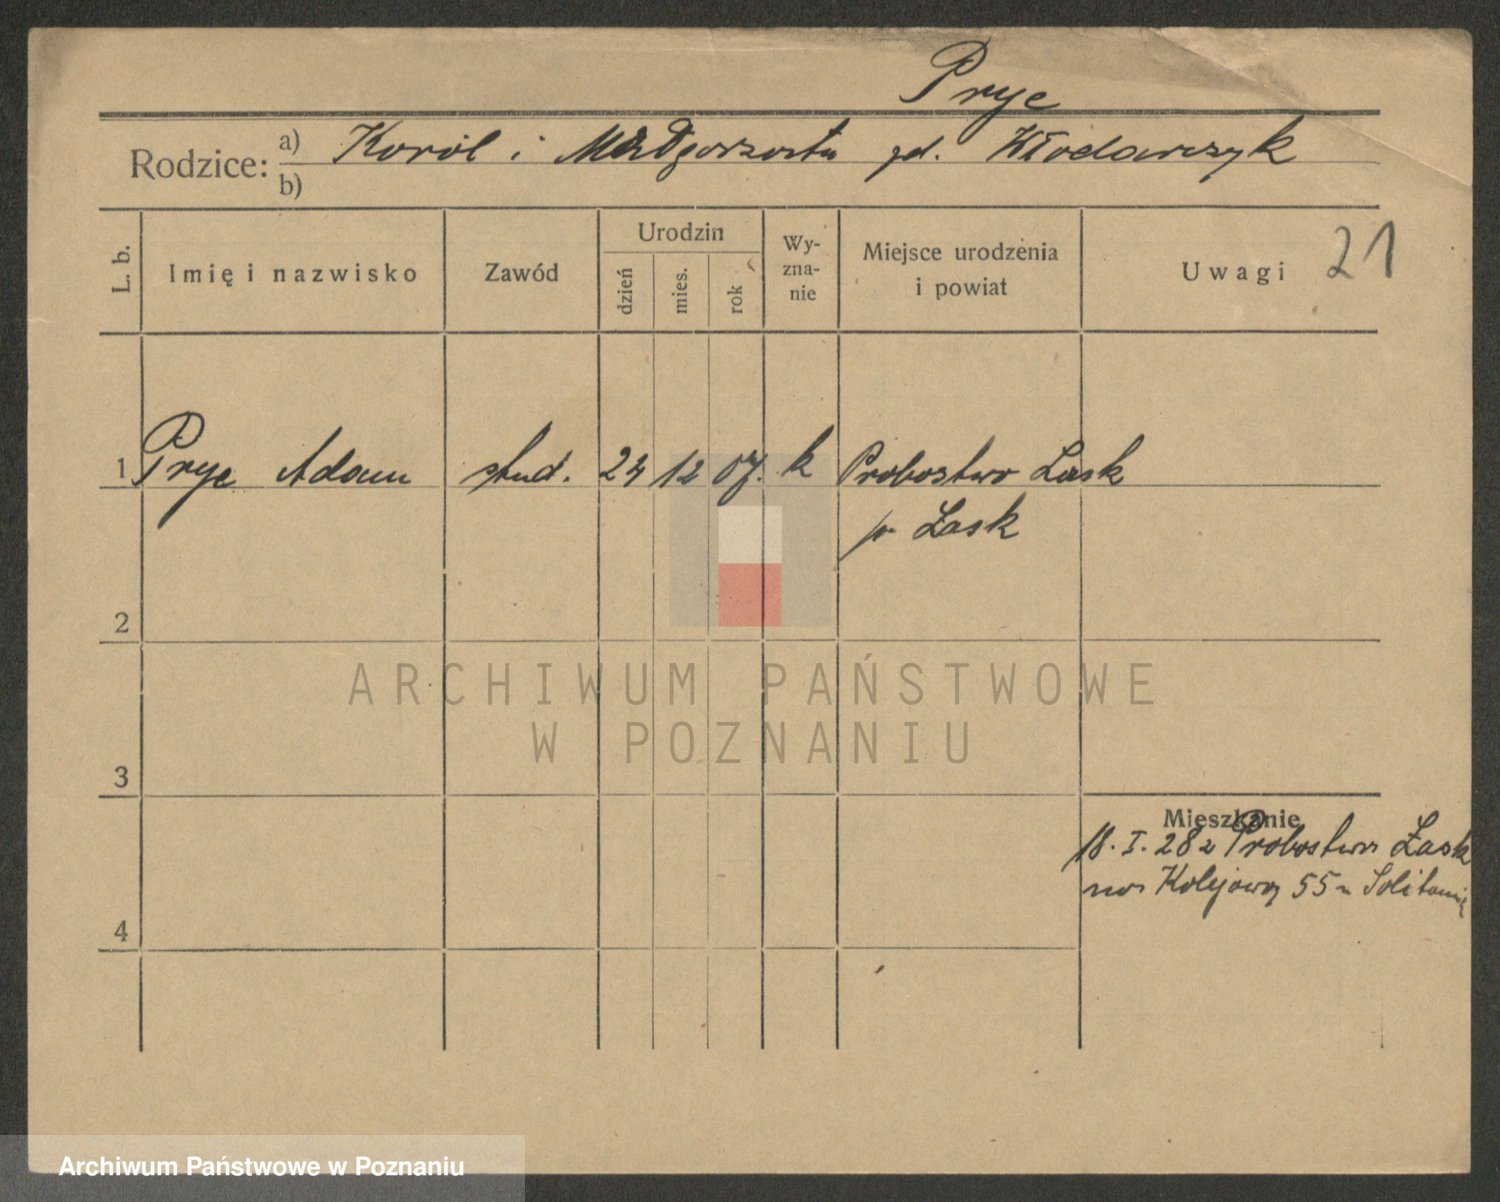 Pryc
Rodzice: a) Karól i Małgorzata zd. Włodarczyk
b)
L. b.
Imię i nazwisko
Zawód
Urodzin
dzień
mies.
rok
Wy-
zna-
nie
Miejsce urodzenia
i powiat
Uwagi 21
1 Pryc Adam stud. 23 12 07. k Probostwo Łask
p Łask
2
3
4
Mieszkanie
18. I. 28 z Probostwa Łask
na Kolejową 55
ARCHIWUM PAŃSTWOWE
W POZNANIU
Archiwum Państwowe w Poznaniu